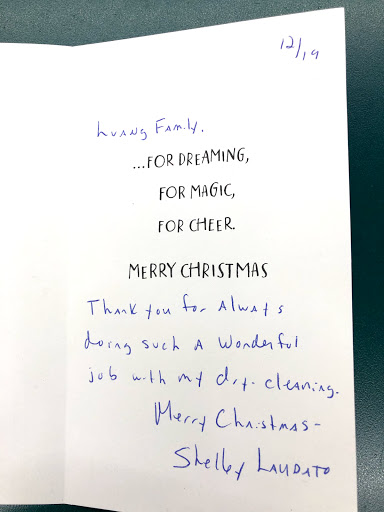 12/19
Luang Family.
...FOR DREAMING,
FOR MAGIC,
FOR CHEER.
MERRY CHRISTMAS
Thank you for Always
doing such A wonderful
job with my dry. cleaning.
Merry Christmas-
Shelley LAUDATO